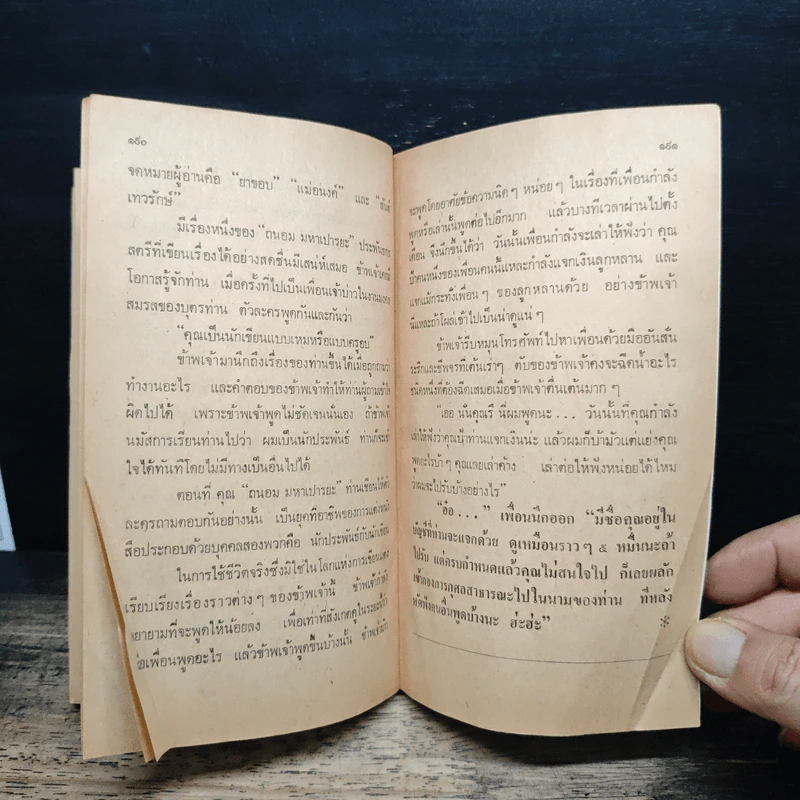 ๑๕๐
จดหมายผู้อ่านคือ "ยาขอบ" "แม่อนงค์" และ "สันต์
เทวรักษ์"
มีเรื่องหนึ่งของ "ถนอม มหาเปารยะ" ประพันธกร
สตรีที่เขียนเรื่องได้อย่างสดชื่นมีเสน่ห์เสมอ ข้าพเจ้าเคยมี
โอกาสรู้จักท่าน เมื่อครั้งที่ไปเป็นเพื่อนเจ้าบ่าวในงานมงคล
สมรสของบุตรท่าน ตัวละครพูดกันและกันว่า
"คุณเป็นนักเขียนแบบเหมหรือแบบครูอบ"
ข้าพเจ้ามานึกถึงเรื่องของท่านขึ้นได้เมื่อถูกถามว่า
ทำงานอะไร และคำตอบของข้าพเจ้าทำให้ท่านผู้ถามเข้าใจ
ผิดไปได้ เพราะข้าพเจ้าพูดไม่ชัดเจนนั่นเอง ถ้าข้าพเจ้า
นมัสการเรียนท่านไปว่า ผมเป็นนักประพันธ์ ท่านก็จะเข้า
ใจได้ทันทีโดยไม่มีทางเป็นอื่นไปได้
ตอนที่ คุณ "ถนอม มหาเปารยะ" ท่านเขียนให้ตัว
ละครถามตอบกันอย่างนั้น เป็นยุคที่อาชีพของการแต่งหนัง
สือประกอบด้วยบุคคลสองพวกคือ นักประพันธ์กับนักเขียน
ในการใช้ชีวิตจริงซึ่งมิใช่ในโลกแห่งการเขียนและ
เรียบเรียงเรื่องราวต่างๆ ของข้าพเจ้านี้ ข้าพเจ้ากำลัง
พยายามที่จะพูดให้น้อยลง เพื่อเท่าที่สังเกตดูในระยะนี้ว่า
เพื่อนพูดอะไร แล้วข้าพเจ้าพูดขึ้นบ้างนั้น ข้าพเจ้ามัก
๑๕๑
จะพูดโดยอาศัยข้อความนิดๆ หน่อยๆ ในเรื่องที่เพื่อนกำลัง
พูดหรือเล่านั้นพูดต่อไปอีกมาก แล้วบางทีเวลาผ่านไปตั้ง
เดือน จึงนึกขึ้นได้ว่า วันนั้นเพื่อนกำลังจะเล่าให้ฟังว่า คุณ
ป้าคนหนึ่งของเพื่อนคนนั้นแหละกำลังแจกเงินลูกหลาน และ
แจกแม้กระทั่งเพื่อนๆ ของลูกหลานด้วย อย่างข้าพเจ้า
นี่แหละถ้าโผล่เข้าไปเป็นน่าดูแน่ๆ
ข้าพเจ้ารีบหมุนโทรศัพท์ไปหาเพื่อนด้วยมืออันสั่น
ระริกและชีพจรที่เต้นเร่าๆ ตับของข้าพเจ้าคงจะฉีดน้ำอะไร
ชนิดหนึ่งที่ต้องฉีดเสมอเมื่อข้าพเจ้าตื่นเต้นมากๆ
"เออ นั่นคุณรึ นี่ผมพูดนะ... วันนั้นที่คุณกำลัง
เล่าให้ฟังว่าคุณป้าท่านแจกเงินน่ะ แล้วผมก็บ้ามัวแต่แย่งคุณ
พูดอะไรบ้าๆ คุณเลยเล่าค้าง เล่าต่อให้ฟังหน่อยได้ไหม
ว่าผมจะไปรับบ้างอย่างไร"
"อ๋อ..." เพื่อนนึกออก "มีชื่อคุณอยู่ใน
บัญชีที่ท่านจะแจกด้วย ดูเหมือนราวๆ ๕ หมื่นนะถ้า
ไปรับ แต่ครบกำหนดแล้วคุณไม่สนใจไป ก็เลยผลัก
เข้ากองการกุศลสาธารณะไปในนามของท่าน ทีหลัง
หัดฟังคนอื่นพูดบ้างนะ ฮ่ะฮ่ะ"
*